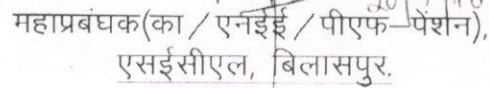 महाप्रबंधक(का/एनईई/पीएफ–पेंशन),
एसईसीएल, बिलासपुर.